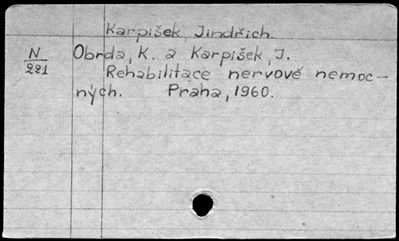 Karpišek, Jindřich.
N
221
Obrda, K. a Karpišek, J.
Rehabilitace nervově nemoc-
ných. Praha, 1960.